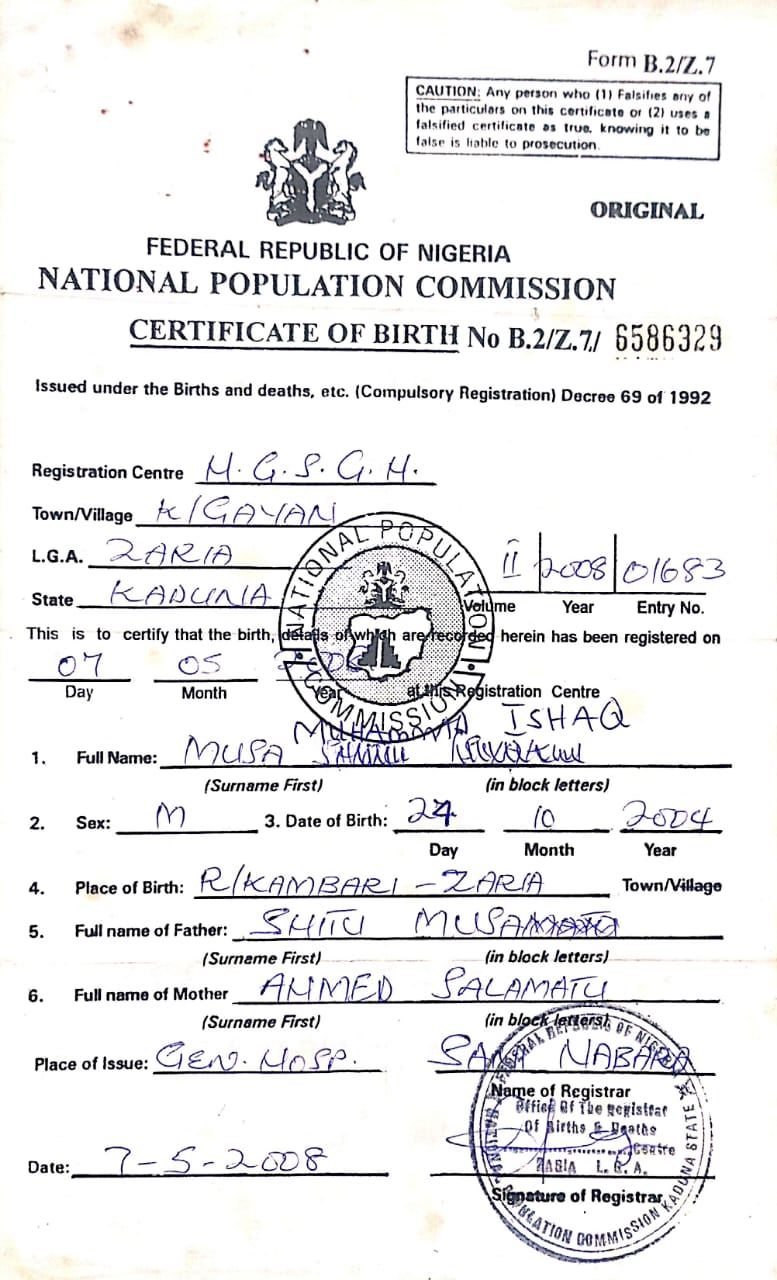 Form B.2/Z.7
CAUTION: Any person who (1) Falsifies any of
the particulars on this certificate or (2) uses a
falsified certificate as true, knowing it to be
false is liable to prosecution.
ORIGINAL
FEDERAL REPUBLIC OF NIGERIA
NATIONAL POPULATION COMMISSION
CERTIFICATE OF BIRTH No B.2/Z.7/ 6586329
Issued under the Births and deaths, etc. (Compulsory Registration) Decree 69 of 1992
Registration Centre H.G.S.G.H.
Town/Village K/GAYAN
L.G.A. ZARIA
State KADUNA
II 2008 01683
Volume Year Entry No.
NATIONAL POPULATION COMMISSION
This is to certify that the birth, details of which are recorded herein has been registered on
07 05
Day Month Year at this Registration Centre
MUHAMMAD ISHAQ
1. Full Name: MUSA
(Surname First) (in block letters)
2. Sex: M 3. Date of Birth: 24 10 2004
Day Month Year
4. Place of Birth: R/KAMBARI - ZARIA Town/Village
5. Full name of Father: SHITU MUSA
(Surname First) (in block letters)
6. Full name of Mother AHMED SALAMATU
(Surname First) (in block letters)
Place of Issue: GEN. HOSP. SANI
Name of Registrar
Office Of The Registrar
Of Births & Deaths
Centre
ZARIA L.G.A.
Date: 7-5-2008
Signature of Registrar
POPULATION COMMISSION KADUNA STATE